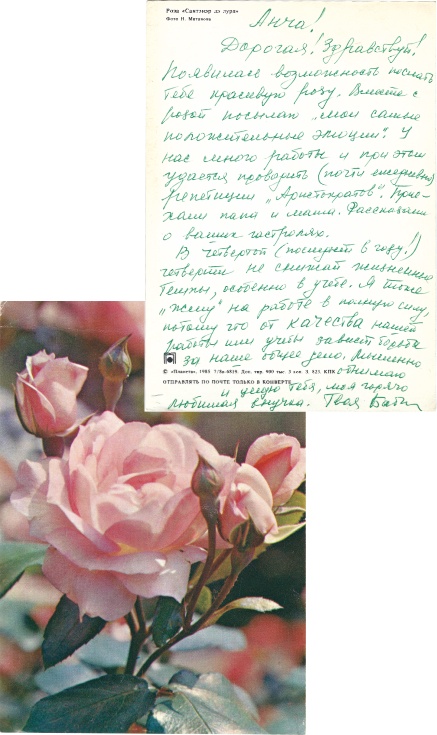 Роза «Сантэнэр дэ лурд»
Фото Н. Матанова
Анча!
Дорогая! Здравствуй!
Появилась возможность послать
тебе красивую розу. Вместе с
розой посылаю „мои самые
положительные эмоции". У
нас много работы и при этом
удается проводить (почти ежедневно)
репетиции „Аристократов". Прие-
хали папа и мама. Рассказали
о ваших гастролях.
В четвертой (последней в году!)
четверти не снижай жизненные
темпы, особенно в учебе. Я тоже
„жму" на работе в полную силу,
потому что от качества нашей
работы или учебы зависит борьба
за наше общее дело. Мысленно
© «Планета», 1985 7/За-6839. Доп. тир. 900 тыс. 3 коп. З. 825. КПК
обнимаю
ОТПРАВЛЯТЬ ПО ПОЧТЕ ТОЛЬКО В КОНВЕРТЕ
и целую тебя, моя горячо
любимая внучка. Твоя